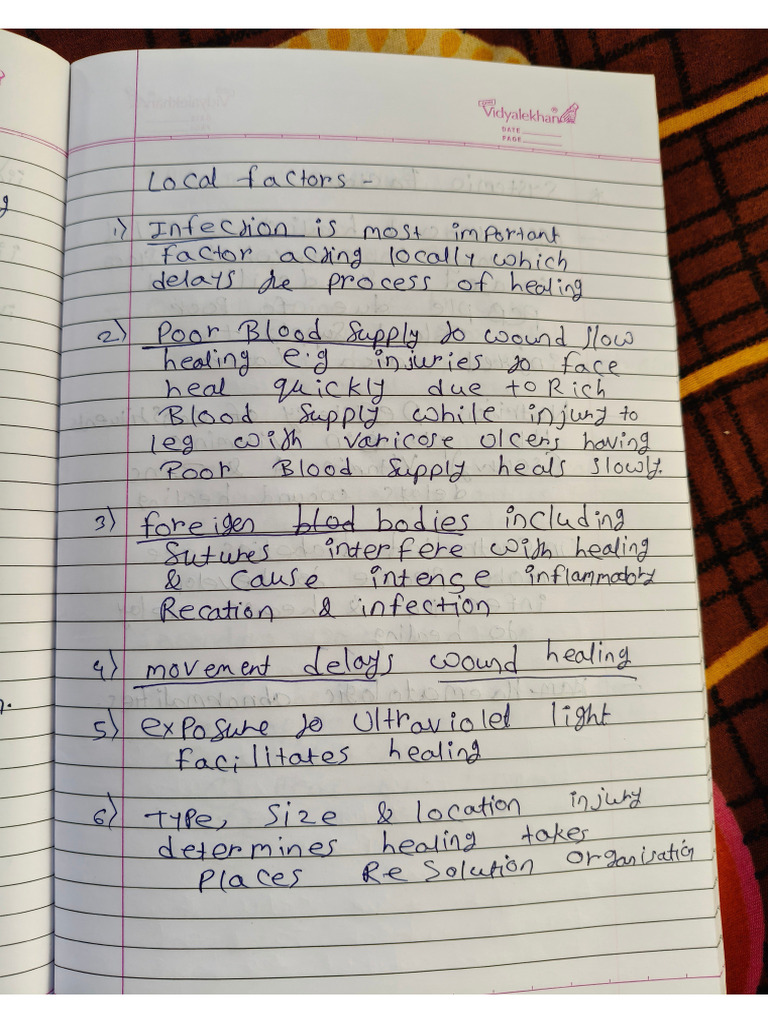 Vidyalekhan
DATE
PAGE
Local factors -
1) Infection is most important
factor acting locally which
delays the process of healing
2) Poor Blood Supply to wound slow
healing e.g injuries to face
heal quickly due to Rich
Blood Supply while injury to
leg with varicose olcers having
Poor Blood Supply heals slowly.
3) foreigen blod bodies including
Sutures interfere with healing
& cause intense inflammatory
Recation & infection
4) movement delays wound healing
5) exposure to Ultraviolet light
facilitates healing
6) Type, Size & location injury
determines healing takes
Places Re Solution Organisation